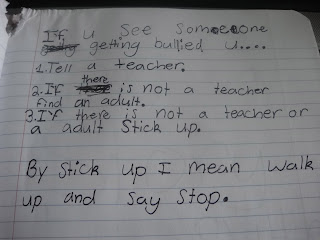 If u See Someone
getting bullied u....
1. Tell a teacher.
2. If there is not a teacher
find an adult.
3. If there is not a teacher or
a adult Stick up.
By Stick up I mean walk
up and say Stop.